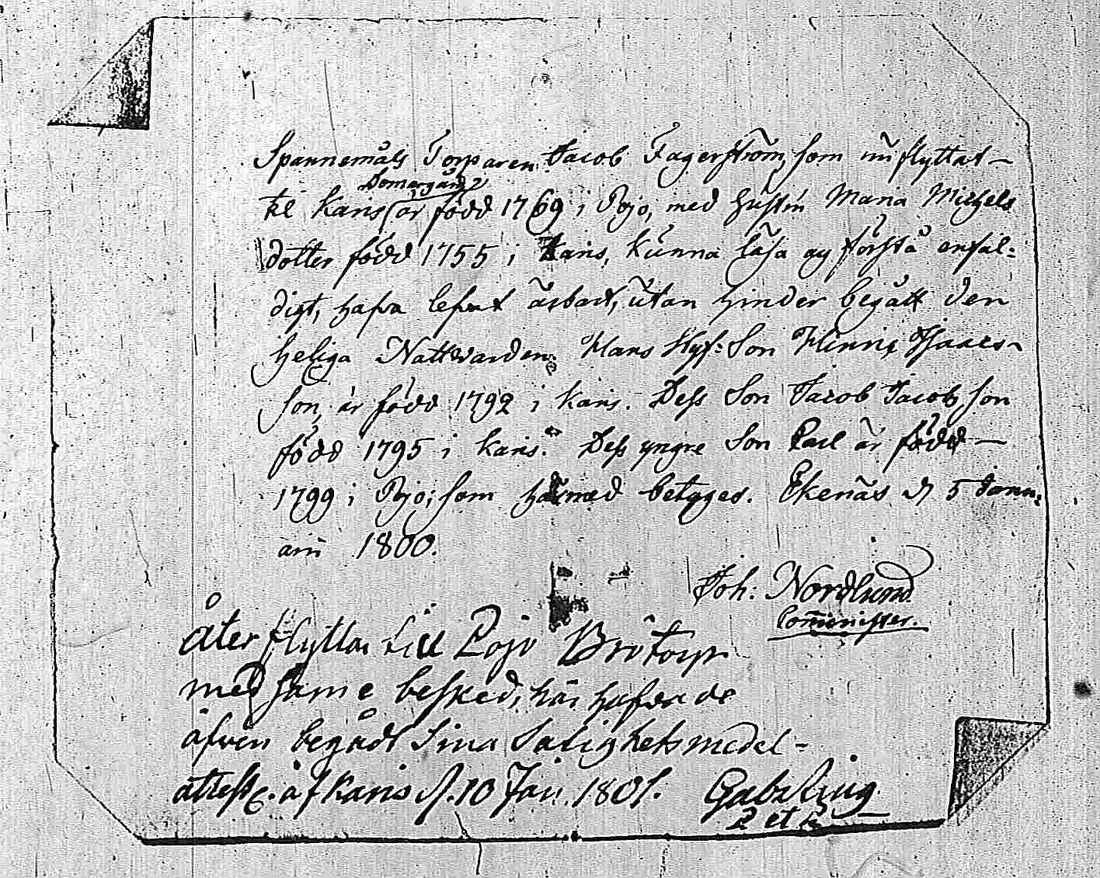 Spannemåls Torparen Jacob Fagerström, som nu flyttat
til Karis Domargård är född 1769 i Pojo, med Hustrun Maria Michels
dotter född 1755 i Karis, kunna läsa och förstå enfal-
digt, hafva lefvat ärbart, utan hinder begått den
heliga Nattvarden. Hans Styf: Son Hinric Isaacs-
son, är född 1792 i Karis. Dess Son Jacob Jacobsson
född 1795 i Karis. Dess yngre Son Carl är född
1799 i Pojo; som härmed betyges. Ekenäs d 5 Janu-
arii 1800.
Joh: Nordlund
Comminister.
åter flyttar till Pojo Brötorp
med samme besked, här hafva de
äfven begådt Sina Salighets medel-
attest. af Karis d. 10 Jan. 1801. Gab.